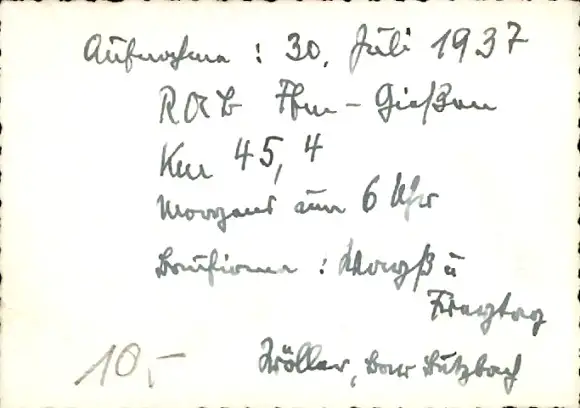 Aufnahme : 30. Juli 1937
RAB Ffm - Gießen
Km 45,4
Morgens um 6 Uhr
Baufirma : Wayß u
Freytag
Butzbach
10,-